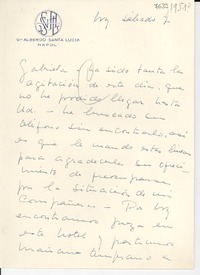 Hoy sábado 7.
V= ALBERGO SANTA LUCIA
NAPOLI
Gabriela – Ha sido tanta la
agitación de este día, que
no he podido llegar hasta
Ud. – he buscado un
teléfono sin encontrarlo, así
es que le mando estas líneas
para agradecerle su ofreci-
miento de preocuparse
por la situación de mi
Compañero – Por hoy
encontramos pieza en
este hotel y partimos
mañana temprano a